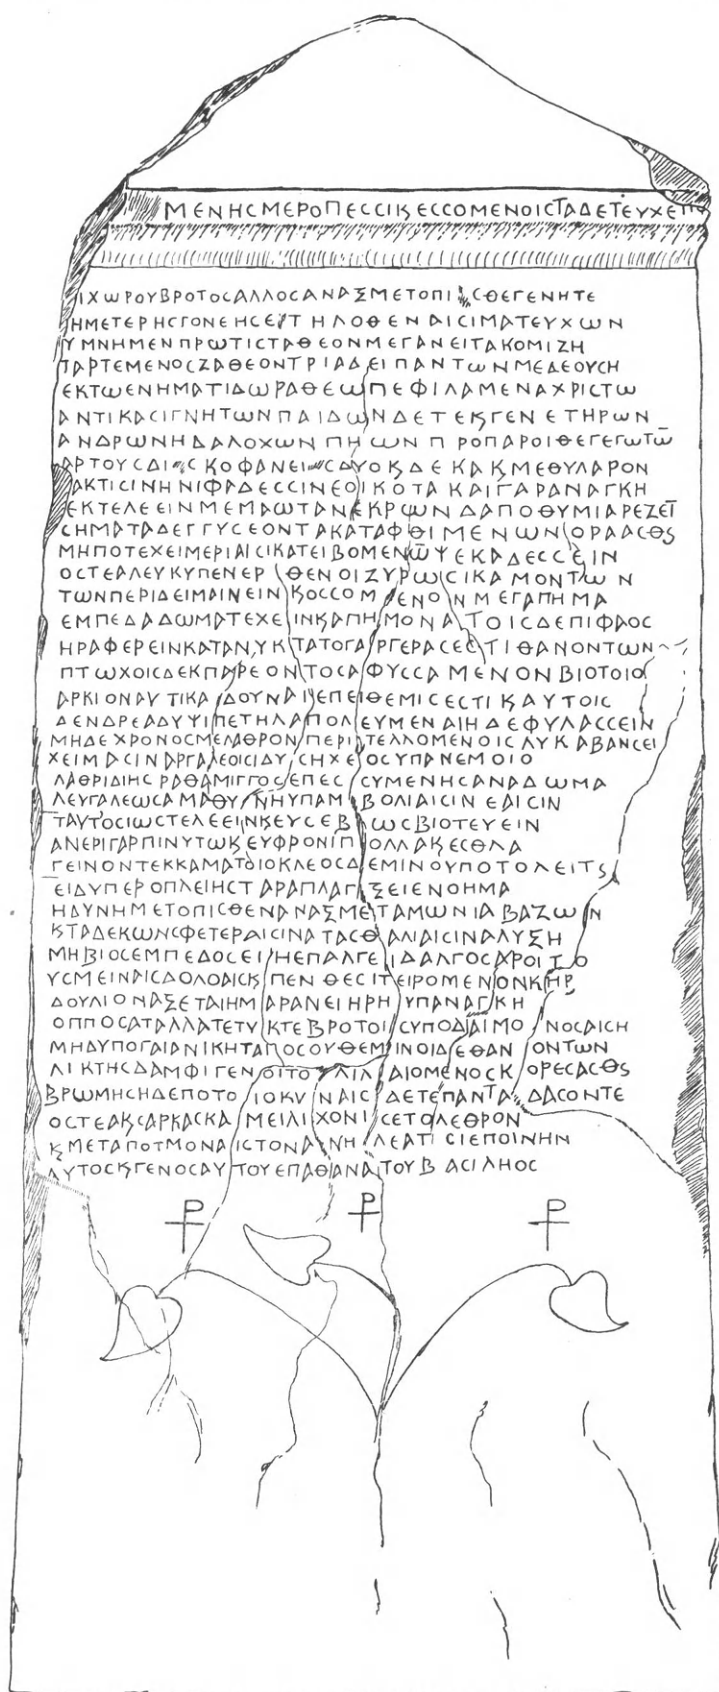 ΜΕΝΗϹΜΕΡΟΠΕϹϹΙϗΕϹϹΟΜΕΝΟΙϹΤΑΔΕΤΕΥΧΕ
ΙΧΩΡΟΥΒΡΟΤΟϹΑΛΛΟϹΑΝΑΞΜΕΤΟΠΙϹΘΕΓΕΝΗΤΕ
ΗΜΕΤΕΡΗϹΓΟΝΕΗϹΕΙΤΗΛΟΘΕΝΑΙϹΙΜΑΤΕΥΧΩΝ
ΥΜΝΗΜΕΝΠΡΩΤΙϹΤΑΘΕΟΝΜΕΓΑΝΕΙΤΑΚΟΜΙΖΗ
ΤΑΡΤΕΜΕΝΟϹΖΑΘΕΟΝΤΡΙΑΔΕΙΠΑΝΤΩΝΜΕΔΕΟΥϹΗ
ΕΚΤΩΕΝΗΜΑΤΙΔΩΡΑΘΕΩΠΕΦΙΛΑΜΕΝΑΧΡΙϹΤΩ
ΑΝΤΙΚΑϹΙΓΝΗΤΩΝΠΑΙΔΩΝΔΕΤΕϗΓΕΝΕΤΗΡΩΝ
ΑΝΔΡΩΝΗΔΑΛΟΧΩΝΠΗΩΝΠΡΟΠΑΡΟΙΘΕΓΕΓΩΤΩ̅
ΑΡΤΟΥϹΔΙϹΚΟΦΑΝΕΙϹΔΥΟϗΔΕΚΑϗΜΕΘΥΛΑΡΟΝ
ΑΚΤΙϹΙΝΗΝΙΦΑΔΕϹϹΙΝΕΟΙΚΟΤΑΚΑΙΓΑΡΑΝΑΓΚΗ
ΕΚΤΕΛΕΕΙΝΜΕΜΑΩΤΑΝΕΚΡΩΝΔΑΠΟΘΥΜΙΑΡΕΖΕΙ̅
ϹΗΜΑΤΑΔΕΓΓΥϹΕΟΝΤΑΚΑΤΑΦΘΙΜΕΝΩΝΟΡΑΑϹΘϗ
ΜΗΠΟΤΕΧΕΙΜΕΡΙΑΙϹΙΚΑΤΕΙΒΟΜΕΝΩ̅ΨΕΚΑΔΕϹϹΕΙΝ
ΟϹΤΕΑΛΕΥΚΥΠΕΝΕΡΘΕΝΟΙΖΥΡΩϹΙΚΑΜΟΝΤΩΝ
ΤΩΝΠΕΡΙΔΕΙΜΑΙΝΕΙΝϗΟϹϹΟΜΕΝΟΝΜΕΓΑΠΗΜΑ
ΕΜΠΕΔΑΔΩΜΑΤΕΧΕΙΝΚΑΠΗΜΟΝΑΤΟΙϹΔΕΠΙΦΑΟϹ
ΗΡΑΦΕΡΕΙΝΚΑΤΑΝΥΚΤΑΤΟΓΑΡΓΕΡΑϹΕϹΤΙΘΑΝΟΝΤΩΝ
ΠΤΩΧΟΙϹΔΕΚΠΑΡΕΟΝΤΟϹΑΦΥϹϹΑΜΕΝΟΝΒΙΟΤΟΙΟ
ΑΡΚΙΟΝΑΥΤΙΚΑΔΟΥΝΑΙΕΠΕΙΘΕΜΙϹΕϹΤΙϗΑΥΤΟΙϹ
ΔΕΝΔΡΕΑΔΥΨΙΠΕΤΗΛΑΠΟΛΕΥΜΕΝΑΙΗΔΕΦΥΛΑϹϹΕΙΝ
ΜΗΔΕΧΡΟΝΟϹΜΕΛΑΘΡΟΝΠΕΡΙΤΕΛΛΟΜΕΝΟΙϹΛΥΚΑΒΑΝϹΕΙ
ΧΕΙΜΑϹΙΝΑΡΓΑΛΕΟΙϹΙΔΥϹΗΧΕΟϹΥΠΑΝΕΜΟΙΟ
ΛΑΘΡΙΔΙΗϹΡΑΘΑΜΙΓΓΟϹΕΠΕϹϹΥΜΕΝΗϹΑΝΑΔΩΜΑ
ΛΕΥΓΑΛΕΩϹΑΜΑΘΥΝΗΥΠΑΜΒΟΛΙΑΙϹΙΝΕΑΙϹΙΝ
ΤΑΥΤΟϹΙΩϹΤΕΛΕΕΙΝϗΕΥϹΕΒΩϹΒΙΟΤΕΥΕΙΝ
ΑΝΕΡΙΓΑΡΠΙΝΥΤΩϗΕΥΦΡΟΝΙΠΟΛΛΑϗΕϹΘΛΑ
ΓΕΙΝΟΝΤΕΚΚΑΜΑΤΟΙΟΚΛΕΟϹΔΕΜΙΝΟΥΠΟΤΟΛΕΙΤϗ
ΕΙΔΥΠΕΡΟΠΛΕΙΗϹΤΑΡΑΠΛΑΓΞΕΙΕΝΟΗΜΑ
ΗΔΥΝΗΜΕΤΟΠΙϹΘΕΝΑΝΑΞΜΕΤΑΜΩΝΙΑΒΑΖΩΝ
ϗΤΑΔΕΚΩΝϹΦΕΤΕΡΑΙϹΙΝΑΤΑϹΘΑΛΙΑΙϹΙΝΑΛΥΞΗ
ΜΗΒΙΟϹΕΜΠΕΔΟϹΕΙΗΕΠΑΛΓΕΙΔΑΛΓΟϹΑΡΟΙΤΟ
ΥϹΜΕΙΝΑΙϹΔΟΛΟΑΙϹϗΠΕΝΘΕϹΙΤΕΙΡΟΜΕΝΟΝΚΗΡ
ΔΟΥΛΙΟΝΑΞΕΤΑΙΗΜΑΡΑΝΕΙΗΡΗΥΠΑΝΑΓΚΗ
ΟΠΠΟϹΑΤΑΛΛΑΤΕΤΥΚΤΕΒΡΟΤΟΙϹΥΠΟΔΑΙΜΟΝΟϹΑΙϹΗ
ΜΗΔΥΠΟΓΑΙΑΝΙΚΗΤΑΠΟϹΟΥΘΕΜΙΝΟΙΔΕΘΑΝΟΝΤΩΝ
ΛΙΚΤΗϹΔΑΜΦΙΓΕΝΟΙΤΟΛΙΛΑΙΟΜΕΝΟϹΚΟΡΕϹΑϹΘϗ
ΒΡΩΜΗϹΗΔΕΠΟΤΟΙΟΚΥΝΑΙϹΔΕΤΕΠΑΝΤΑΔΑϹΟΝΤΕ
ΟϹΤΕΑϗϹΑΡΚΑϹΚΑΜΕΙΛΙΧΟΝΙϹΕΤΟΛΕΘΡΟΝ
ϗΜΕΤΑΠΟΤΜΟΝΑΙϹΤΟΝΑΝΗΛΕΑΤΙϹΙΕΠΟΙΝΗΝ
ΑΥΤΟϹϗΓΕΝΟϹΑΥΤΟΥΕΠΑΘΑΝΑΤΟΥΒΑϹΙΛΗΟϹ
⳨ ⳨ ⳨